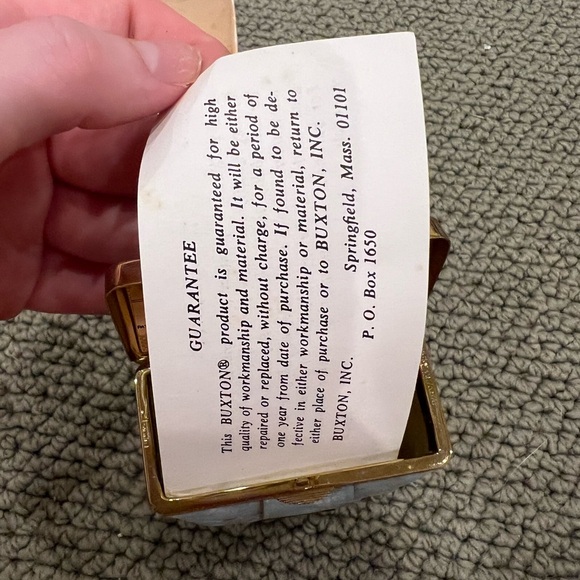 GUARANTEE
This BUXTON® product is guaranteed for high
quality of workmanship and material. It will be either
repaired or replaced, without charge, for a period of
one year from date of purchase. If found to be de-
fective in either workmanship or material, return to
either place of purchase or to BUXTON, INC.
BUXTON, INC. Springfield, Mass. 01101
P. O. Box 1650